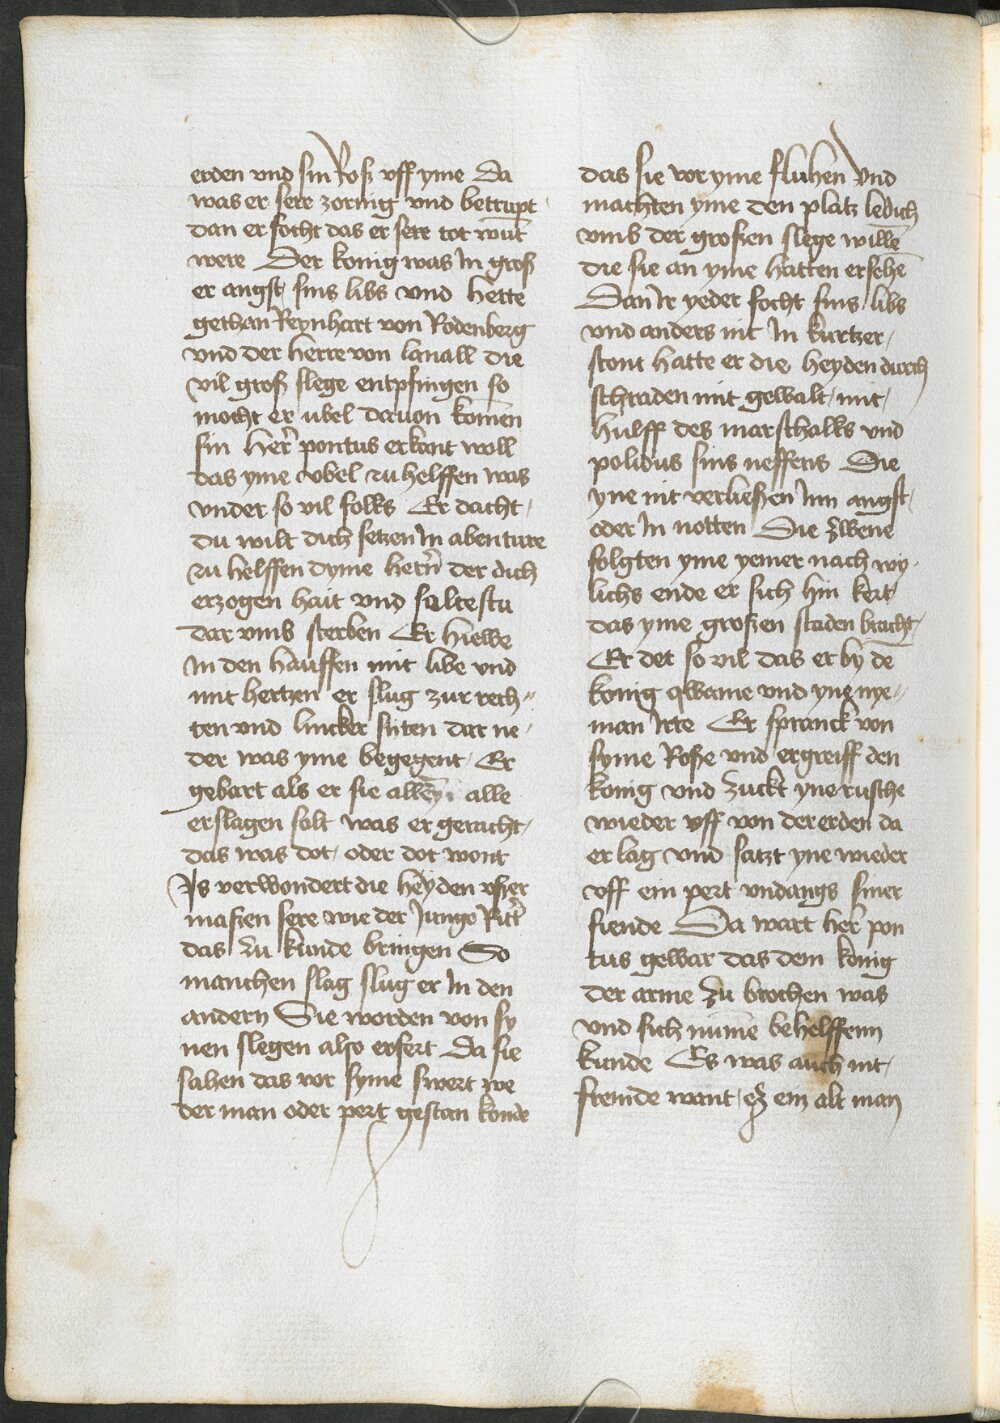 erden vnd sin Roß vff yme Da
was er sere zornig vnd betrupt
dan er focht das er sere tot wūt
were Der konig was In groß
er angst sins libs vnd hette
gethan Reynhart von Rodenberg
vnd der herre von lanall die
vil groß slege entpfingen so
mocht er ubel dauon komen
sin her pontus erkant woll
das yme vbel zu helffen was
vnder so vil folks Er dacht
du wilt dich setzen In abenture
zu helffen dyme hern der dich
erzogen hait vnd saltestu
dar vmb sterben Er hiewe
In den hauffen mit libe vnd
mit hertzen er slug zur rech
ten vnd lincker sijten dar ne
der was yme begegent Er
gebart als er sie alle
erslagen solt was er geracht
das was dot oder dot wont
Is verwondert die heyden vsser
massen sere wie der Junge Ritter
das zu kunde bringen So
manchen slag slug er In den
andern Sie worden von sy
nen slegen also erfert Da sie
sahen das vor syme swert we
der man oder pert gestan konde
das sie vor yme fluhen Vnd
machten yme den platz ledich
vmb der großen slege willē
die sie an yme hatten ersehē
Dan Ir yeder focht sins libs
vnd anders nit In kurtzer
stont hatte er die heyden durch
schraden mit gewalt mit
hulff des marschalks vnd
polidus sins neffens Die
yne nit verließen Inn angst
oder In notten Die zwene
folgten yme yemer nach wy
lichs ende er sich hin kert
das yme großen staden bracht
Er det so vil das er by dē
konig qwame vnd yne nye
man Irte Er spranck von
syme Roße vnd ergreiff den
konig vnd zuckt yne rusche
wieder vff von der erden da
er lag vnd satzt yne wieder
vff ein pert vndangs siner
fiende Da wart her pon
tus gewar das dem konig
der arme zu brochen was
vnd sich nūme behelffenn
kunde Es was auch nit
fremde want eß ein alt man